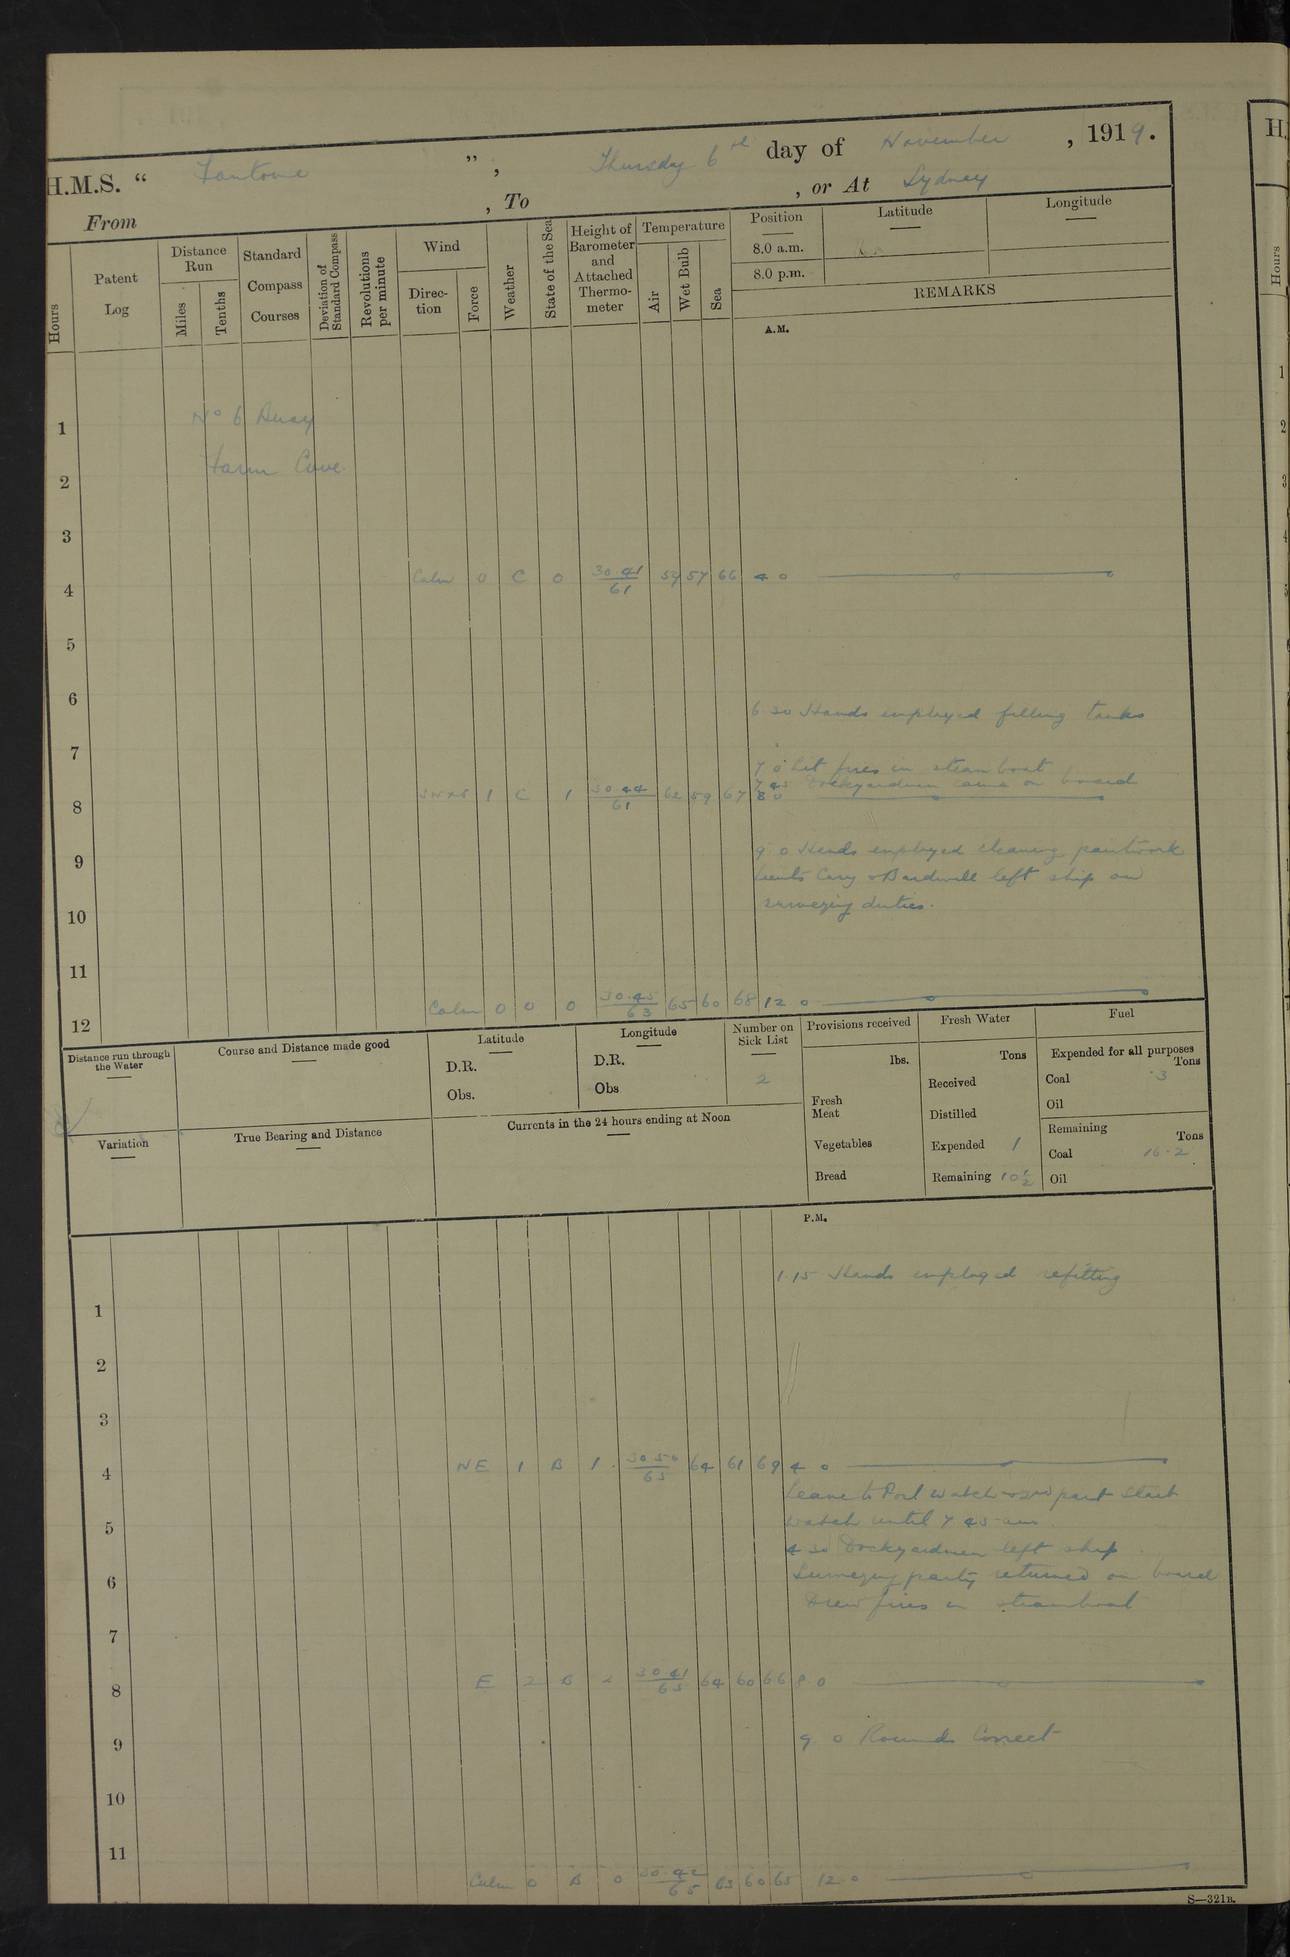 H.M.S. “ Fantome ”, Thursday 6th day of November , 1919.
From , To , or At Sydney
Hours
Patent Log
Distance Run
Miles
Tenths
Standard Compass Courses
Deviation of Standard Compass
Revolutions per minute
Wind
Direction
Force
Weather
State of the Sea
Height of Barometer and Attached Thermometer
Temperature
Air
Wet Bulb
Sea
Position
8.0 a.m.
8.0 p.m.
Latitude
Longitude
REMARKS
A.M.
1 No 6 Buoy
2 Farm Cove
3
4 Calm 0 C 0 30.41/61 59 57 66 4 0
5
6
6 30 Hands employed filling tanks
7
7 0 Lit fires in steam boat
7 45 Dockyardmen came on board
8 1 C 1 30.44/61 62 59 67 8 0
9 9 0 Hands employed cleaning paintwork
Lieuts Cary & Bardwell left ship on
10 surveying duties.
11
12 Calm 0 0 0 30.45/63 65 60 68 12 0
Distance run through the Water
Course and Distance made good
Latitude
D.R.
Obs.
Longitude
D.R.
Obs
Number on Sick List
2
Provisions received
lbs.
Fresh Meat
Vegetables
Bread
Fresh Water
Tons
Received
Distilled
Expended 1
Remaining 10½
Fuel
Expended for all purposes
Tons
Coal ·3
Oil
Remaining
Tons
Coal 16·2
Oil
Variation
True Bearing and Distance
Currents in the 24 hours ending at Noon
P.M.
1.15 Hands employed refitting
1
2
3
4 NE 1 B 1 30.50/65 64 61 69 4 0
Leave to Port watch & 2nd part Starb
5 watch until 7 45 am.
4 30 Dockyardmen left ship
6 Surveying party returned on board
Drew fires in steamboat
7
8 E 2 B 2 30 41/65 64 60 66 8 0
9 9 0 Rounds Correct
10
11
Calm 0 B 0 30.42/65 63 60 65 12 0
S—321B.
H.
Hours
1
2
3
4